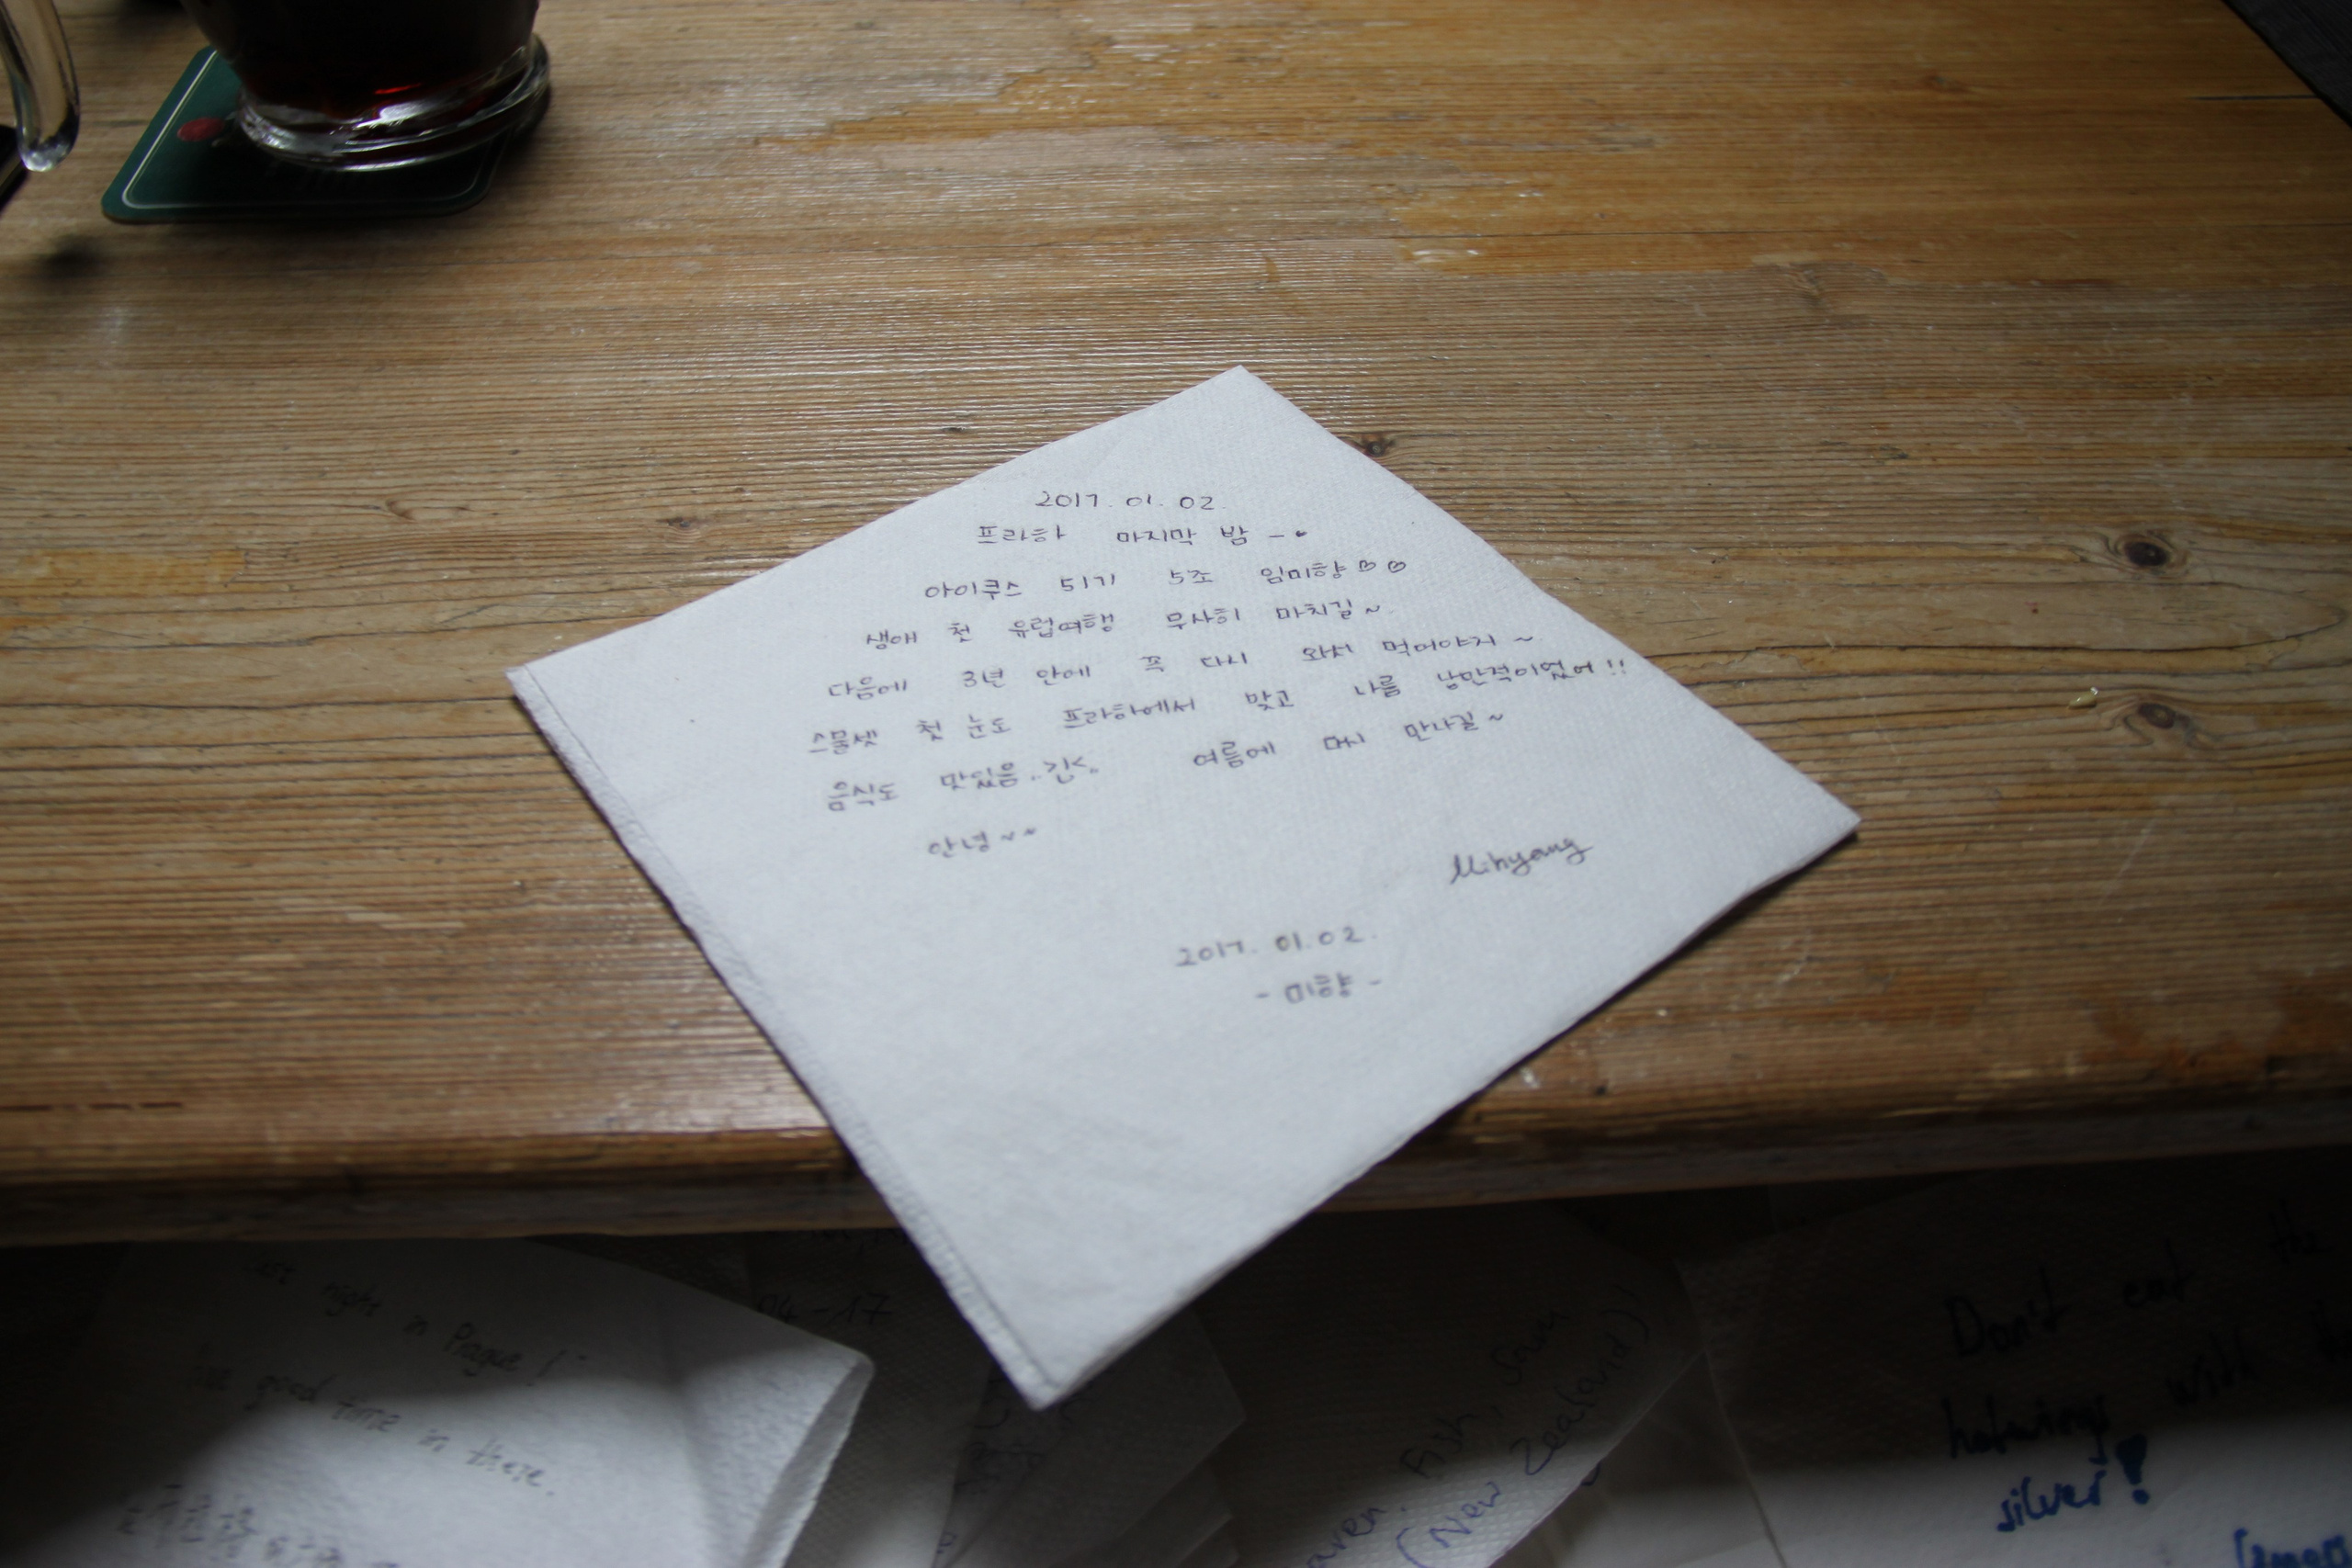 2017. 01. 02.
프라하 마지막 밤 -
아이쿠스 51기 5조 임미향
생애 첫 유럽여행 무사히 마치길~
다음에 3년 안에 꼭 다시 와서 먹어야지~
스물셋 첫 눈도 프라하에서 맞고 나름 낭만적이었어!!
음식도 맛있음.. 여름에 다시 만나길~
안녕~~
Mihyang
2017. 01. 02.
- 미향 -
night in Prague!
good time in there.
04-17
Fish, Sam
(New Zealand)!
Don't eat the
with
silver!